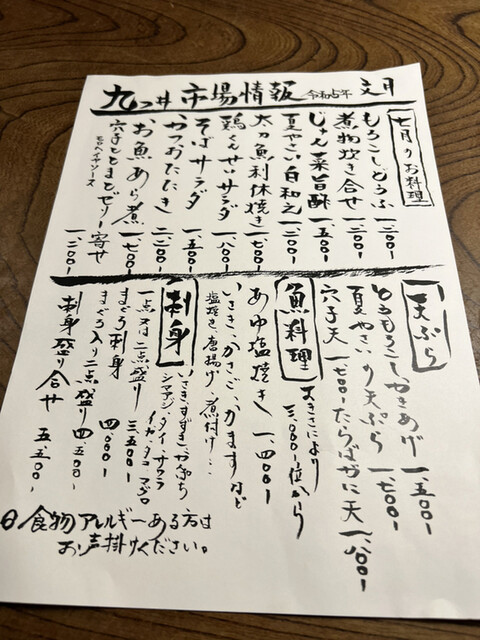 九つ井 市場情報 令和5年 文月
七月のお料理
もろこしどうふ 一、二〇〇-
煮物炊き合せ 一、二〇〇-
じゅん菜旨酢 一、五〇〇-
夏やさい白和え 一、二〇〇-
太刀魚利休焼き 一、七〇〇-
鶏くんせいサラダ 一、八〇〇-
そばサラダ 一、五〇〇-
かつおたたき 二、二〇〇-
お魚あら煮 一、七〇〇-
穴子ととまとゼリー寄せ 一、三〇〇-
モロヘイヤソース
天ぷら
とうもろこしかきあげ 一、五〇〇-
夏やさいの天ぷら 一、七〇〇-
穴子天 一、七〇〇- たらばがに天 一、八〇〇-
魚料理
大きさにより
三、〇〇〇-位から
あゆ塩焼き 一、四〇〇-
いさき、かさご、かますなど
塩焼き、唐揚げ、煮付け…
刺身
いさき、すずき、かんぱち
シマアジ、タイ、サワラ
イカ、タコ、マグロ
一点又は二点盛り 三、五〇〇-
まぐろ刺身 四、〇〇〇-
まぐろ入り二点盛り 四、五〇〇-
刺身盛り合せ 五、五〇〇-
食物アレルギーある方は
お声掛けください。